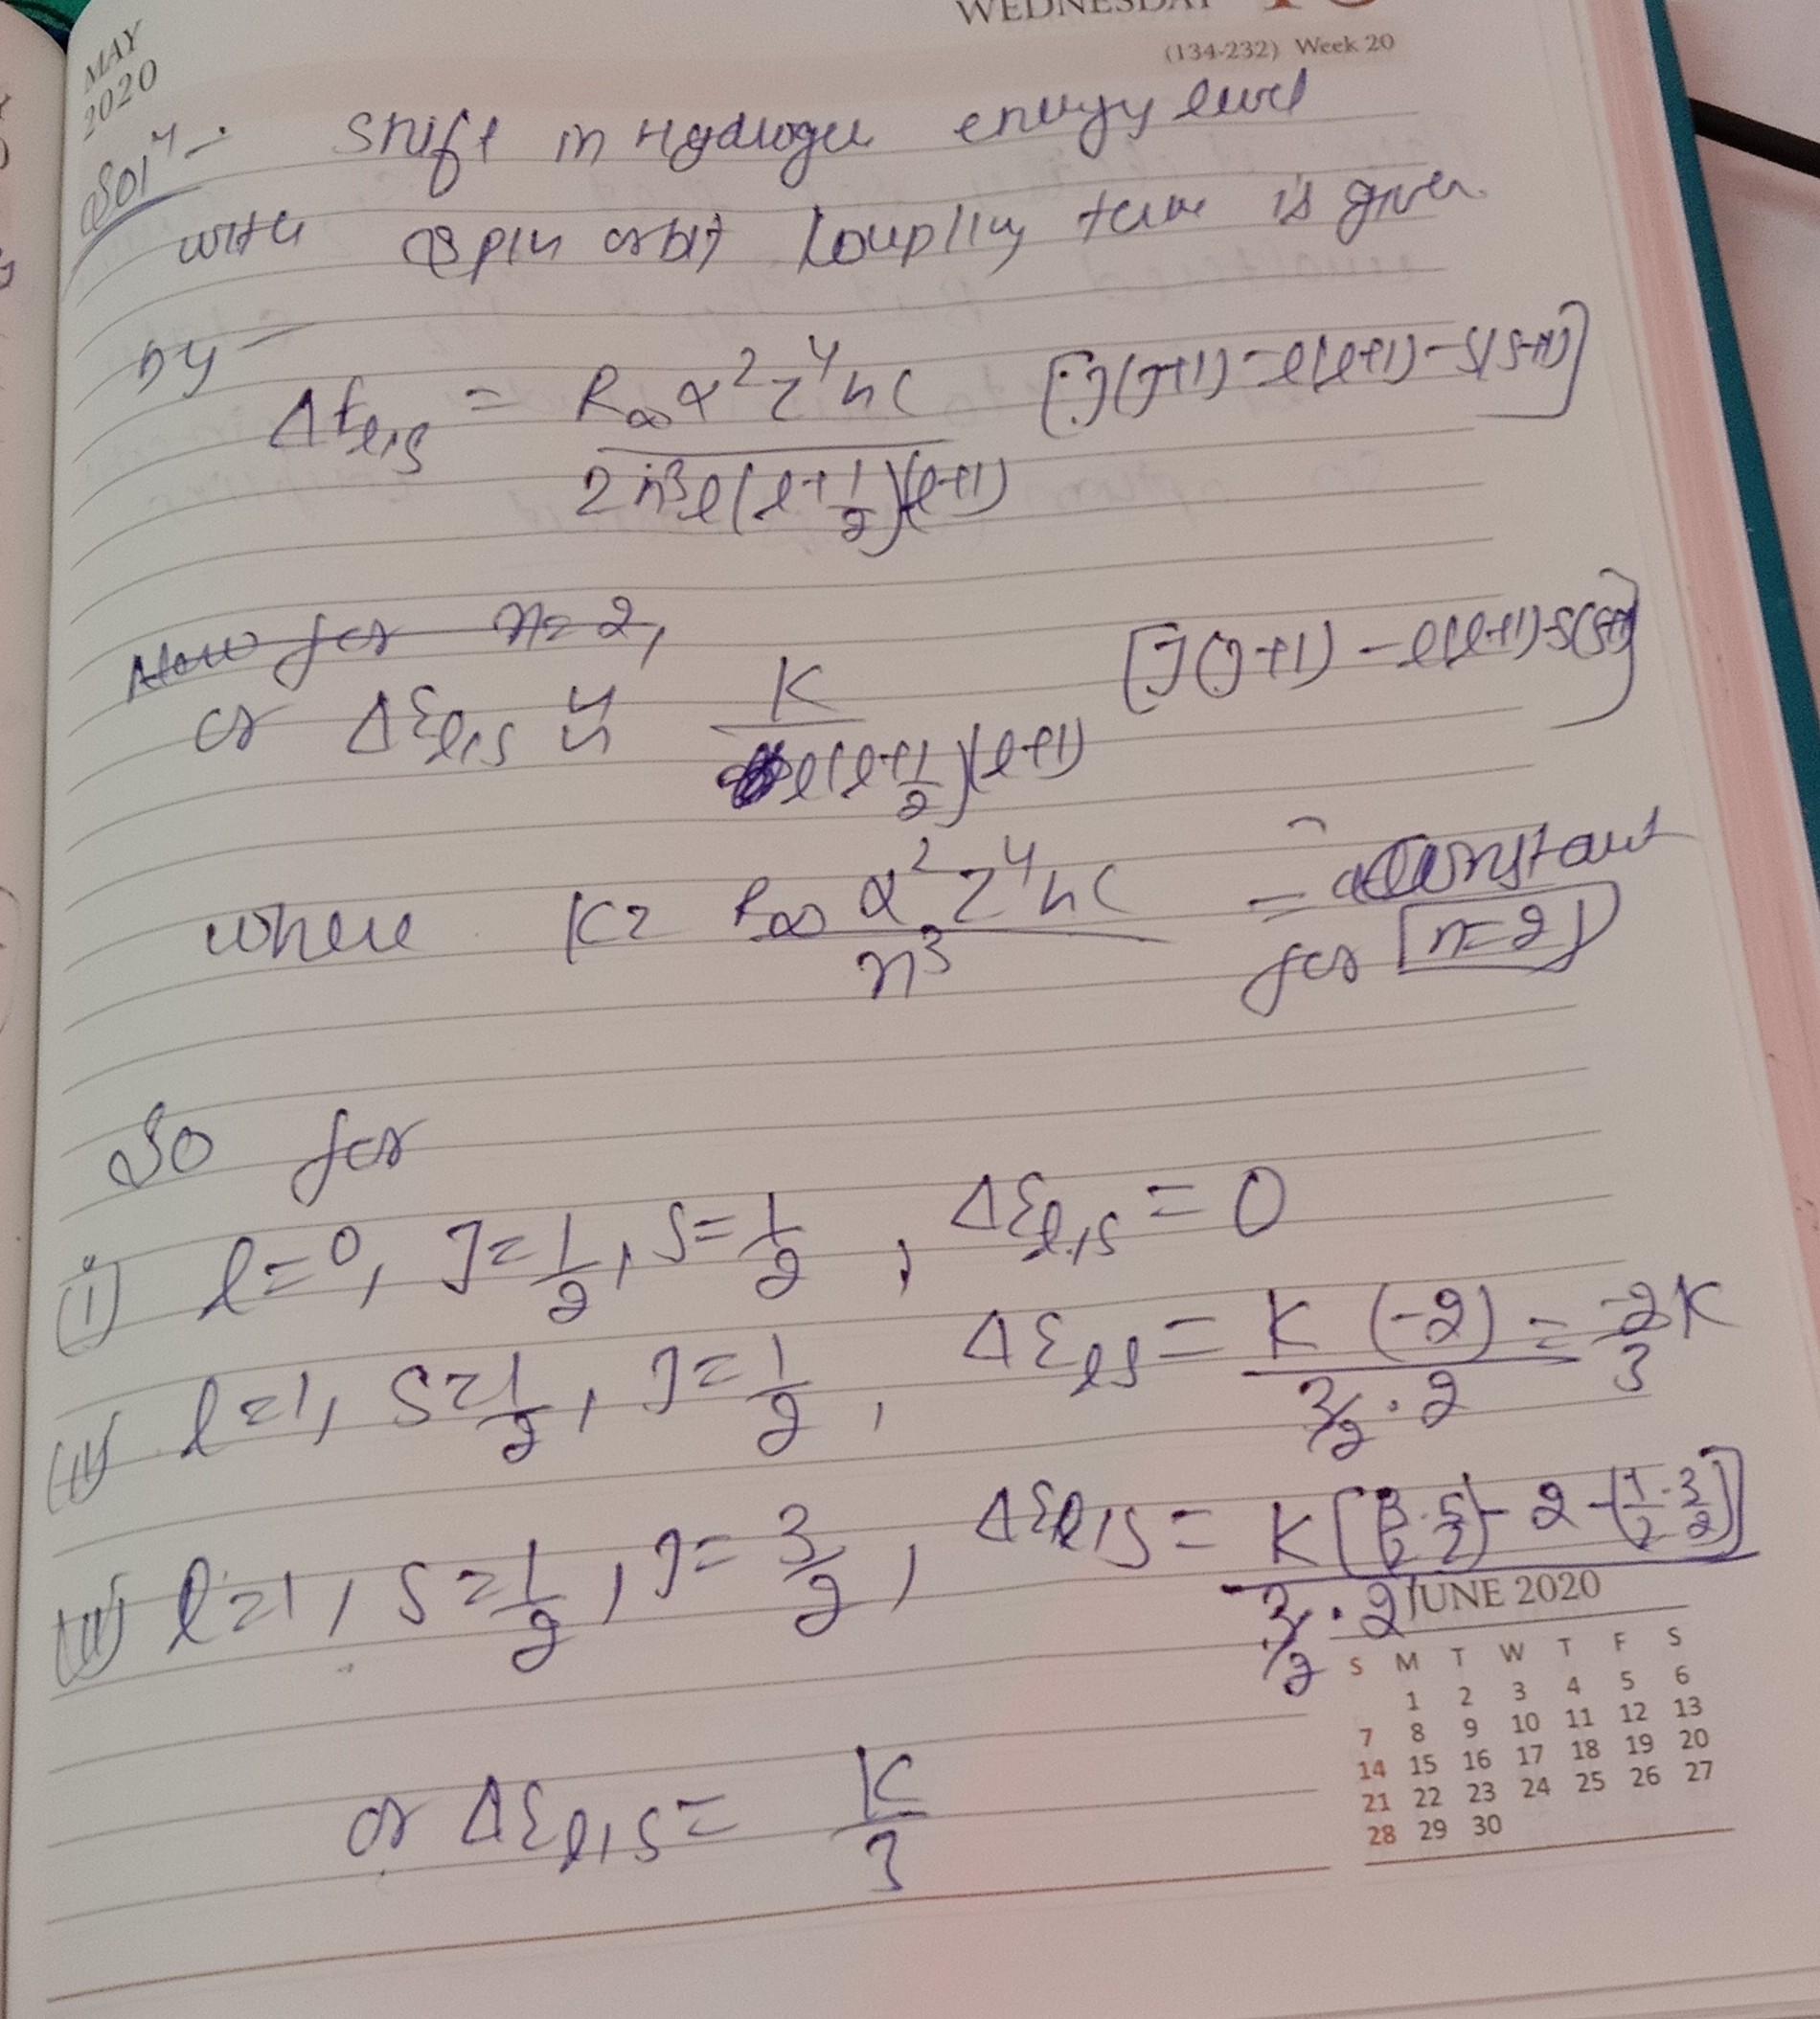 WEDNESDAY
(134-232) Week 20
MAY
2020
Solⁿ - Shift in Hydrogen energy level
with spin orbit coupling term is given
by -
ΔE_{l,s} = R_∞ α² Z⁴ h c / 2 n³ l (l + 1/2)(l+1) [J(J+1) - l(l+1) - s(s+1)]
Now for n = 2,
or ΔE_{l,s} = K / l(l + 1/2)(l+1) [J(J+1) - l(l+1) - s(s+1)]
where K = R_∞ α² Z⁴ h c / n³ = constant
for n=2
So for
(i) l = 0, J = 1/2, s = 1/2, ΔE_{l,s} = 0
(ii) l = 1, s = 1/2, J = 1/2, ΔE_{ls} = K (-2) / 3/2 · 2 = -2/3 K
(iii) l = 1, s = 1/2, J = 3/2, ΔE_{l,s} = K [(3/2 · 5/2) - 2 - (1/2 · 3/2)] / 3/2 · 2
or ΔE_{l,s} = K/3
JUNE 2020
S M T W T F S
1 2 3 4 5 6
7 8 9 10 11 12 13
14 15 16 17 18 19 20
21 22 23 24 25 26 27
28 29 30